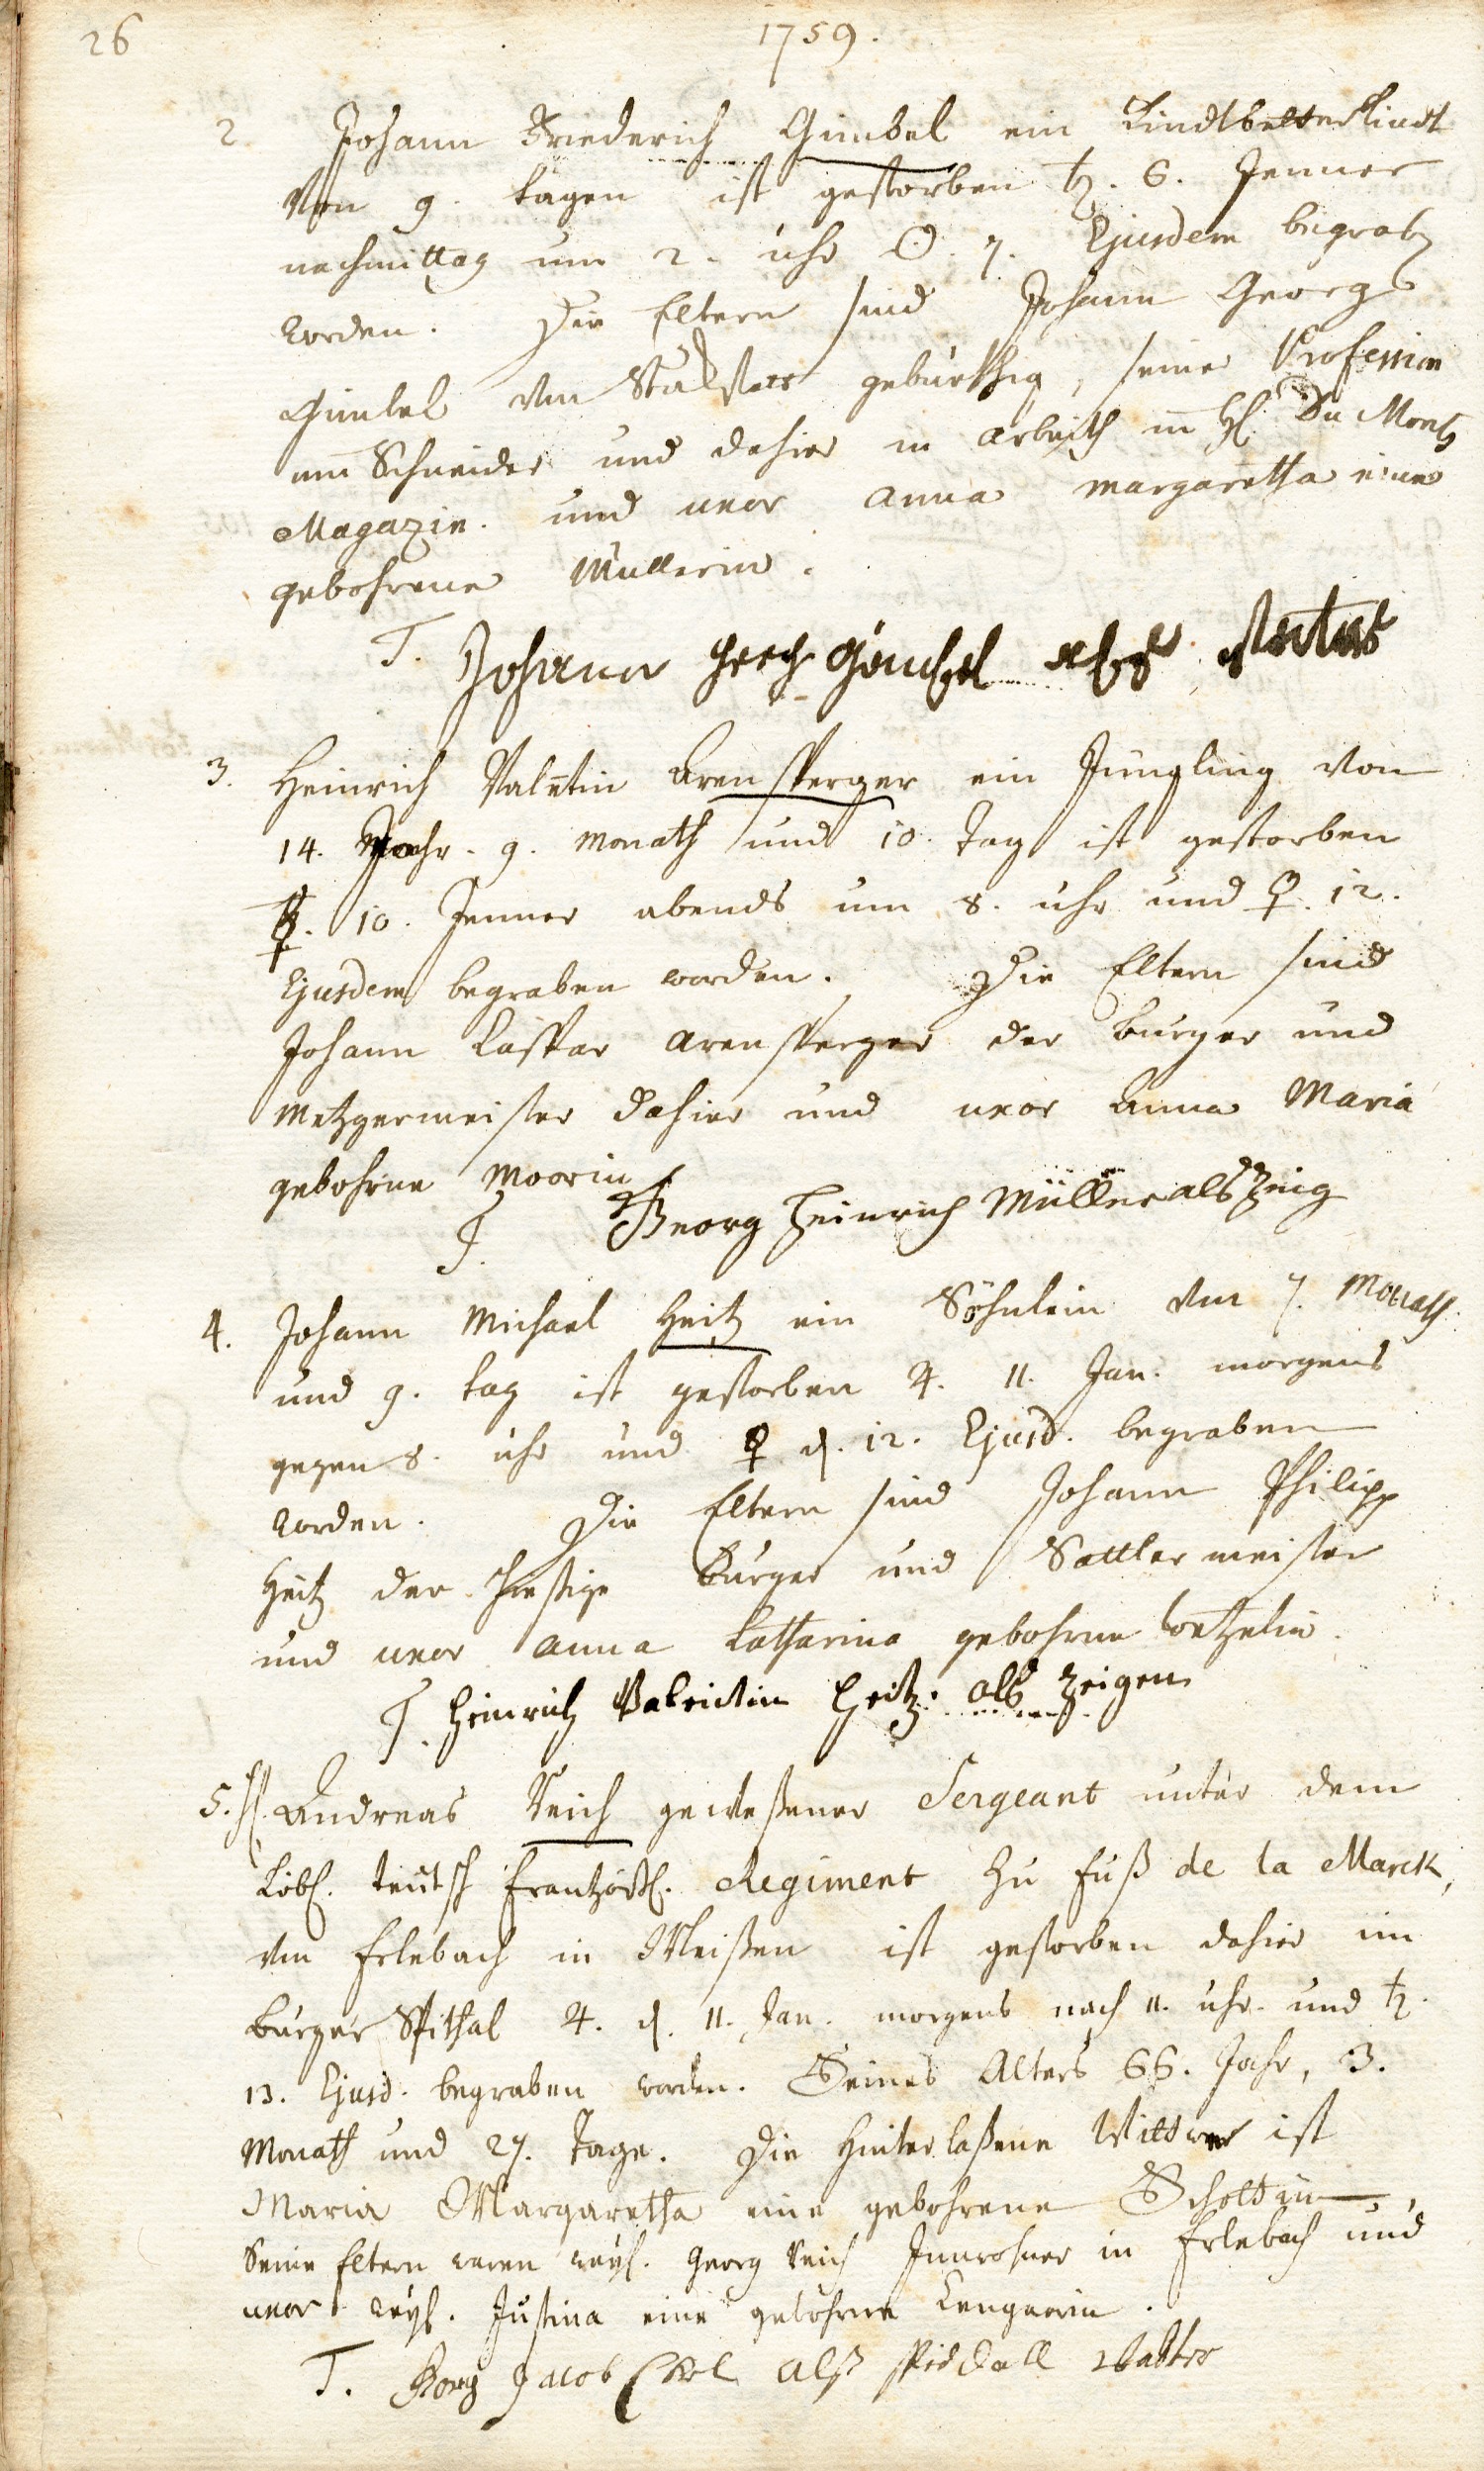 26
1759.
2 Johann Friederich Gimbel ein Kindtbetterkindt
Von 9. tagen ist gestorben ♄. 6. Jenner
nachmittag um 2. uhr ☉. 7. Ejusdem begraben
worden. Die Eltern sind Johann Georg
Gimbel von gebürthig, seine Profession
ein Schneider und dahier in arbeith in H. Du Monts
Magazin. und uxor Anna Margaretha eine
gebohrene Müllerin.
T. Johann Gimbel als
3. Heinrich Valentin Arensperger ein Jüngling von
14. Jahr. 9. Monath und 10. Tag ist gestorben
☿. 10. Jenner abends um 8. uhr und ♀. 12.
Ejusdem begraben worden. Die Eltern sind
Johann Caspar Arensperger der burger und
Metzgermeister dahier und uxor Anna Maria
gebohrne Moorin
T. Georg Heinrich Müller als Zeig
4. Johann Michael Heitz ein Söhnlein von 7. Monath
und 9. tag ist gestorben ♃. 11. Jan. morgens
gegen 8. uhr und ♀ d. 12. Ejusd. begraben
worden. Die Eltern sind Johann Philipp
Heitz der hiesige Burger und Sattler meister
und uxor Anna Catharina gebohrne
T. Heinrich Valentin Heitz als Zeigen
5. H. Andreas Reich geweßener Sergeant unter dem
Löbl. teutsch Frantzösch. Regiment zu Fuß de la Marck,
von Erlebach in Meißen ist gestorben dahier im
burger Spithal ♃. d. 11. Jan. morgens nach 11. uhr und ♄.
13. Ejusd. begraben worden. Seines Alters 66. Jahr, 3.
Monath und 27. Tage. Die Hinterlaßene Wittwe ist
Maria Margaretha eine gebohrene Scholtzin,
Seine Eltern waren weyl. Georg Reich Innwohner in Erlebach und
uxor weyl. Justina eine gebohrne
T. Jacob als